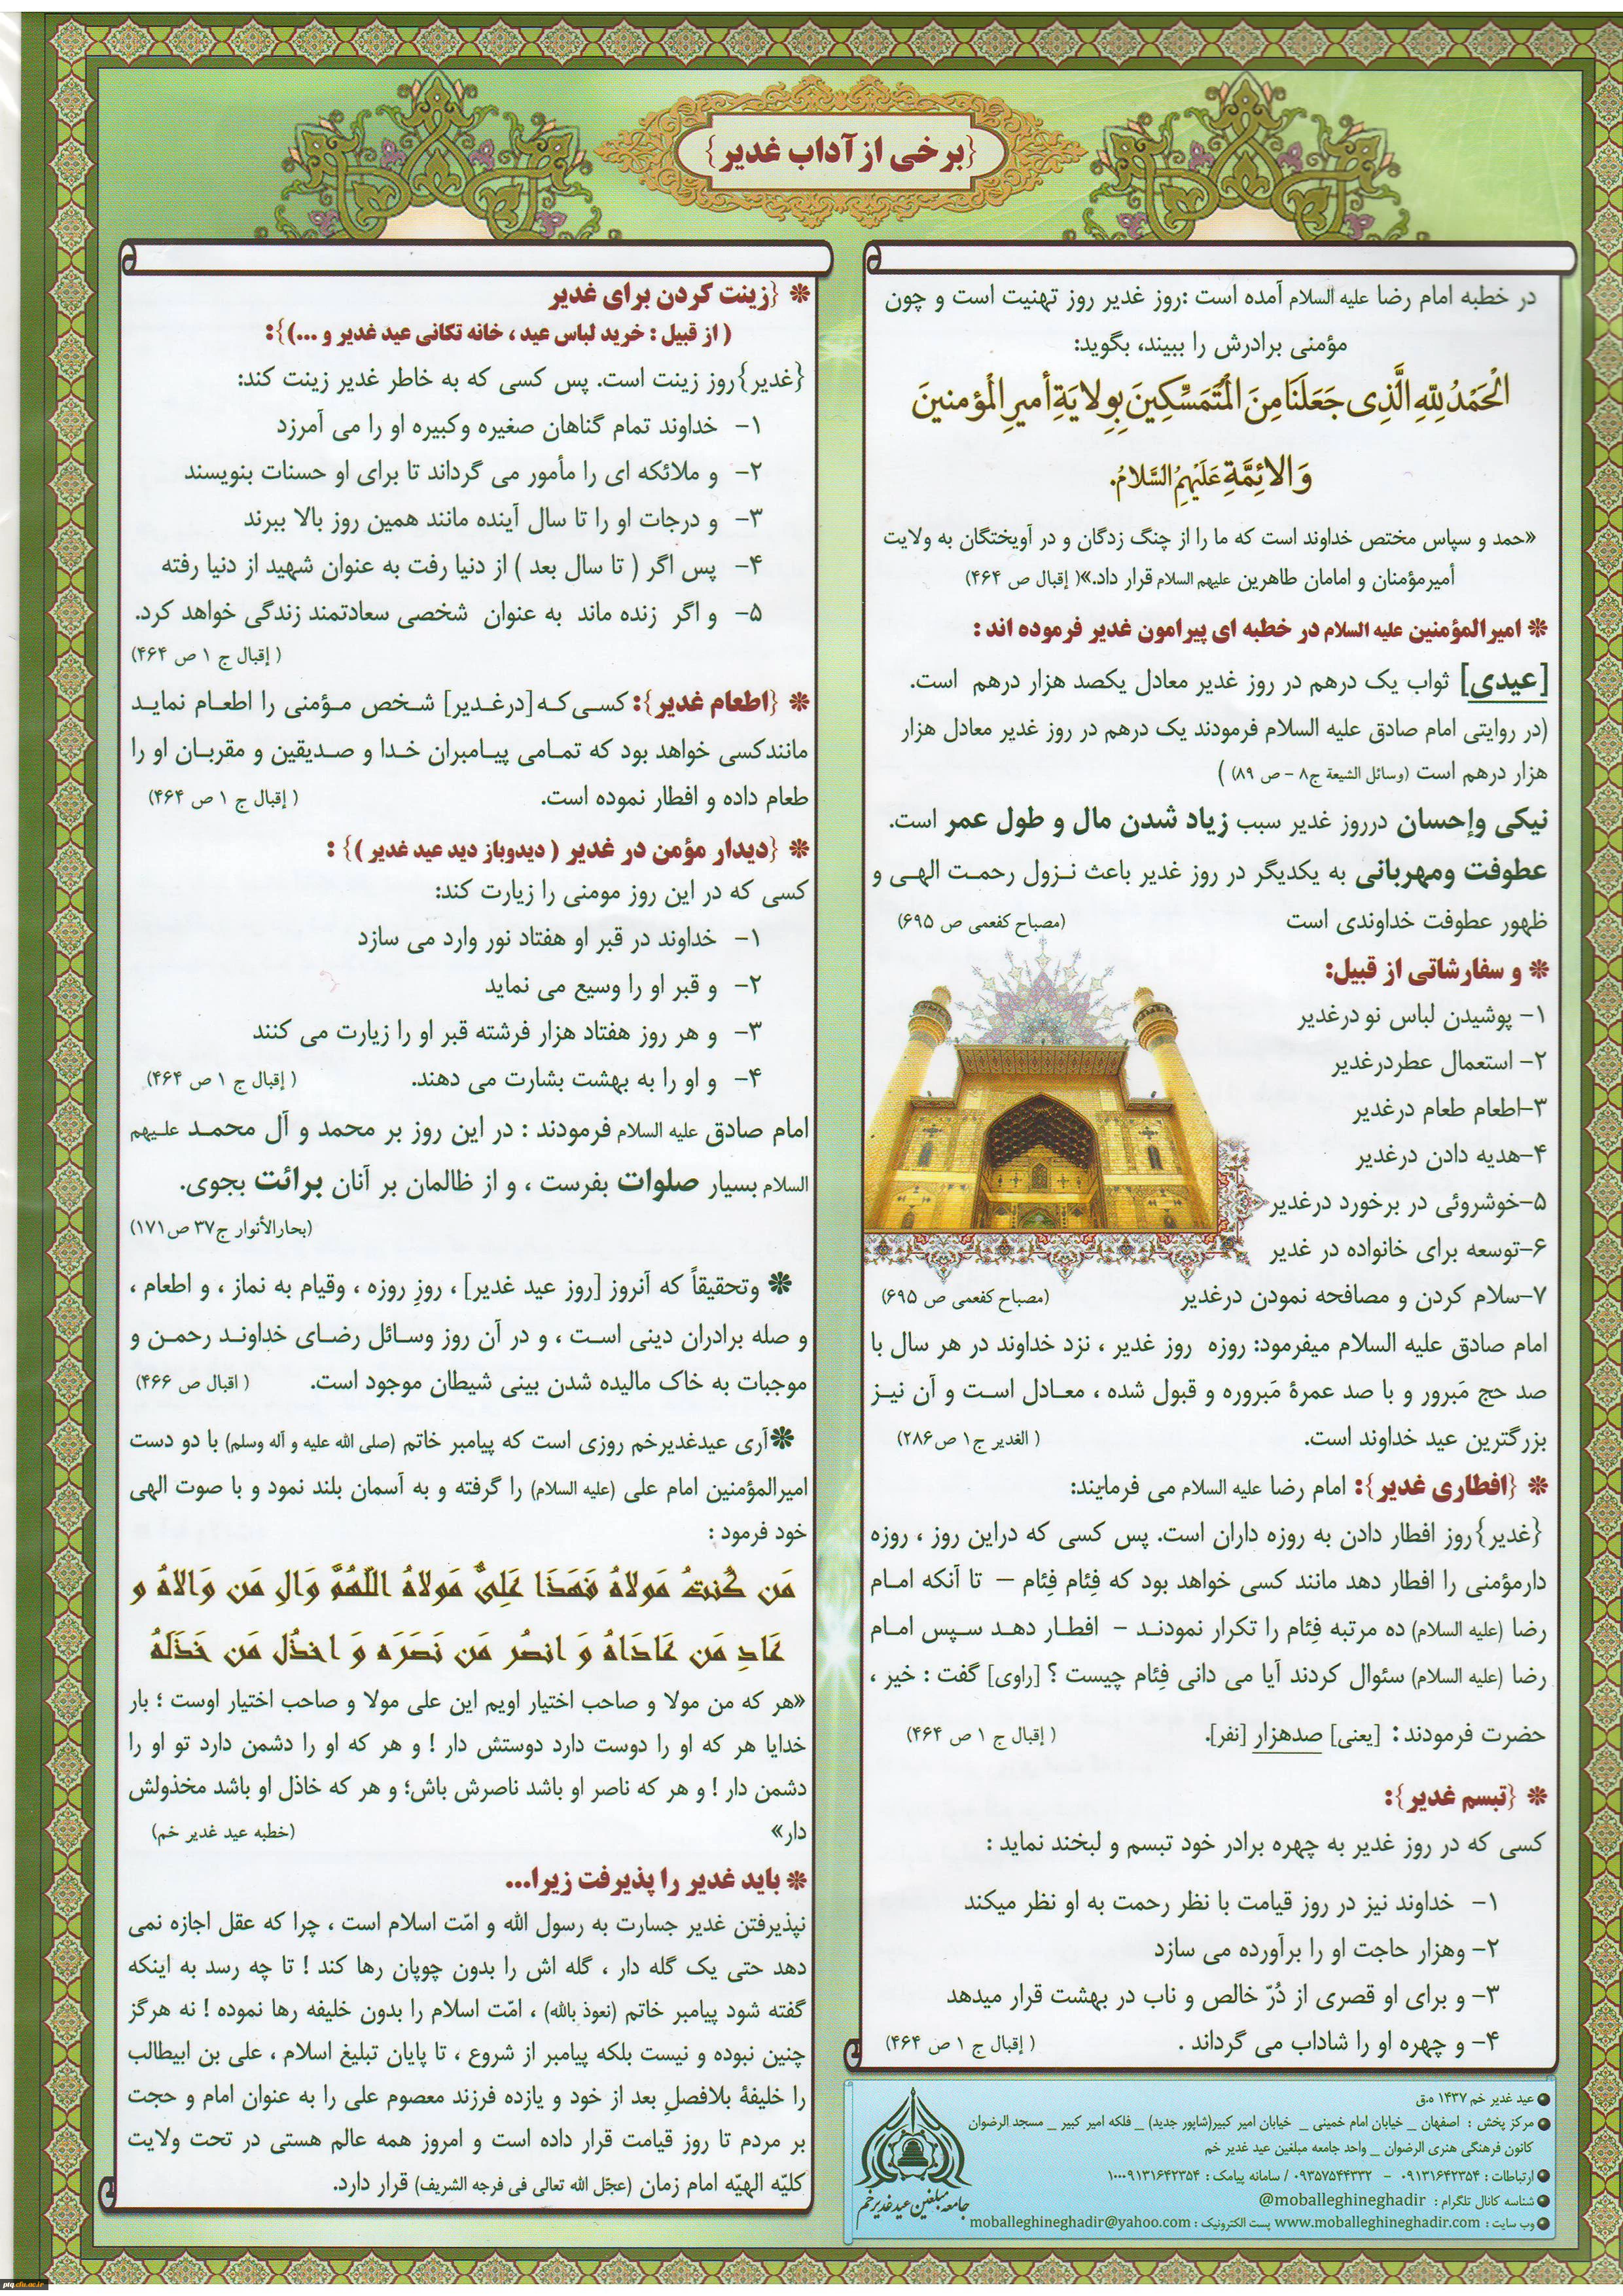 {برخی از آداب غدیر}
در خطبه امام رضا علیه السلام آمده است :روز غدیر روز تهنیت است و چون
مؤمنی برادرش را ببیند، بگوید:
اَلْحَمْدُ لِلّهِ الَّذِی جَعَلَنَا مِنَ الْمُتَمَسِّکِینَ بِوِلایَةِ أمیرِ الْمُؤمنینَ
وَ الائِمَّةِ عَلَیْهِمُ السَّلامُ.
«حمد و سپاس مختص خداوند است که ما را از چنگ زدگان و در آویختگان به ولایت
أمیرمؤمنان و امامان طاهرین علیهم السلام قرار داد.»( إقبال ص ۴۶۴)
❋ امیرالمؤمنین علیه السلام در خطبه ای پیرامون غدیر فرموده اند :
[عیدی] ثواب یک درهم در روز غدیر معادل یکصد هزار درهم است.
(در روایتی امام صادق علیه السلام فرمودند یک درهم در روز غدیر معادل هزار
هزار درهم است (وسائل الشیعة ج۸ – ص ۸۹) )
نیکی وإحسان درروز غدیر سبب زیاد شدن مال و طول عمر است.
عطوفت ومهربانی به یکدیگر در روز غدیر باعث نـزول رحمـت الهـی و
ظهور عطوفت خداوندی است (مصباح کفعمی ص ۶۹۵)
❋ و سفارشاتی از قبیل:
۱– پوشیدن لباس نو درغدیر
۲– استعمال عطردرغدیر
۳–اطعام طعام درغدیر
۴–هدیه دادن درغدیر
۵–خوشروئی در برخورد درغدیر
۶–توسعه برای خانواده در غدیر
۷–سلام کردن و مصافحه نمودن درغدیر (مصباح کفعمی ص ۶۹۵)
امام صادق علیه السلام میفرمود: روزه روز غدیر ، نزد خداوند در هر سال با
صد حج مَبرور و با صد عمرهٔ مَبروره و قبول شده ، معـادل اسـت و آن نیـز
بزرگترین عید خداوند است. ( الغدیر ج۱ ص۲۸۶)
❋ {افطاری غدیر}: امام رضا علیه السلام می فرمایند:
{غدیر}روز افطار دادن به روزه داران است. پس کسی که دراین روز ، روزه
دارمؤمنی را افطار دهد مانند کسی خواهد بود که فِئام فِئام – تا آنکه امـام
رضا (علیه السلام) ده مرتبه فِئام را تکرار نمودنـد – افطـار دهـد سـپس امـام
رضا (علیه السلام) سئوال کردند آیا می دانی فِئام چیست ؟ [راوی] گفت : خیر ،
حضرت فرمودند : [یعنی] صدهزار [نفر]. ( إقبال ج ۱ ص ۴۶۴)
❋ {تبسم غدیر}:
کسی که در روز غدیر به چهره برادر خود تبسم و لبخند نماید :
۱– خداوند نیز در روز قیامت با نظر رحمت به او نظر میکند
۲– وهزار حاجت او را برآورده می سازد
۳– و برای او قصری از دُرّ خالص و ناب در بهشت قرار میدهد
۴– و چهره او را شاداب می گرداند . ( إقبال ج ۱ ص ۴۶۴)
● عید غدیر خم ۱۴۳۷ ه.ق
● مرکز پخش : اصفهان _ خیابان امام خمینی _ خیابان امیر کبیر(شاپور جدید) _ فلکه امیر کبیر _ مسجد الرضوان
کانون فرهنگی هنری الرضوان _ واحد جامعه مبلغین عید غدیر خم
● ارتباطات : ۰۹۱۳۱۶۴۲۳۵۴ – ۰۹۳۵۷۵۴۴۳۳۲ / سامانه پیامک : ۱۰۰۰۹۱۳۱۶۴۲۳۵۴
● شناسه کانال تلگرام : @moballeghineghadir
● وب سایت : www.moballeghineghadir.com پست الکترونیک : moballeghineghadir@yahoo.com
جامعه مبلغین عید غدیر خم
❋ {زینت کردن برای غدیر
( از قبیل : خرید لباس عید ، خانه تکانی عید غدیر و ...)}:
{غدیر}روز زینت است. پس کسی که به خاطر غدیر زینت کند:
۱– خداوند تمام گناهان صغیره وکبیره او را می آمرزد
۲– و ملائکه ای را مأمور می گرداند تا برای او حسنات بنویسند
۳– و درجات او را تا سال آینده مانند همین روز بالا ببرند
۴– پس اگر ( تا سال بعد ) از دنیا رفت به عنوان شهید از دنیا رفته
۵– و اگر زنده ماند به عنوان شخصی سعادتمند زندگی خواهد کرد.
( إقبال ج ۱ ص ۴۶۴)
❋ {اطعام غدیر}: کسـی کـه [درغـدیر] شـخص مـؤمنی را اطعـام نمایـد
مانندکسی خواهد بود که تمـامی پیـامبران خـدا و صـدیقین و مقربـان او را
طعام داده و افطار نموده است. ( إقبال ج ۱ ص ۴۶۴)
❋ {دیدار مؤمن در غدیر ( دیدوباز دید عید غدیر )} :
کسی که در این روز مومنی را زیارت کند:
۱– خداوند در قبر او هفتاد نور وارد می سازد
۲– و قبر او را وسیع می نماید
۳– و هر روز هفتاد هزار فرشته قبر او را زیارت می کنند
۴– و او را به بهشت بشارت می دهند. ( إقبال ج ۱ ص ۴۶۴)
امام صادق علیه السلام فرمودند : در این روز بر محمد و آل محمـد علـیهم
السلام بسیار صلوات بفرست ، و از ظالمان بر آنان برائت بجوی.
(بحارالأنوار ج۳۷ ص۱۷۱)
❋ وتحقیقاً که آنروز [روز عید غدیر] ، روزِ روزه ، وقیام به نماز ، و اطعام ،
و صله برادران دینی اسـت ، و در آن روز وسـائل رضـای خداونـد رحمـن و
موجبات به خاک مالیده شدن بینی شیطان موجود است. ( اقبال ص ۴۶۶)
❋آری عیدغدیرخم روزی است که پیامبر خاتم (صلی الله علیه و آله وسلم) با دو دست
امیرالمؤمنین امام علی (علیه السلام) را گرفته و به آسمان بلند نمود و با صوت الهی
خود فرمود :
مَن کُنتُ مَولاهُ فَهَذَا عَلِیٌّ مَولاهُ اللّهُمَّ وَالِ مَن وَالاهُ و
عَادِ مَن عَادَاهُ وَ انصُر مَن نَصَرَه وَ اخذُل مَن خَذَلَهُ
«هر که من مولا و صاحب اختیار اویم این علی مولا و صاحب اختیار اوست ؛ بار
خدایا هر که او را دوست دارد دوستش دار ! و هر که او را دشمن دارد تو او را
دشمن دار ! و هر که ناصر او باشد ناصرش باش؛ و هر که خاذل او باشد مخذولش
دار» (خطبه عید غدیر خم)
❋ باید غدیر را پذیرفت زیرا...
نپذیرفتن غدیر جسارت به رسول الله و امّت اسلام است ، چرا که عقل اجازه نمی
دهد حتی یک گله دار ، گله اش را بدون چوپان رها کند ! تا چه رسد به اینکه
گفته شود پیامبر خاتم (نعوذ بالله) ، امّت اسلام را بدون خلیفه رها نموده ! نه هرگز
چنین نبوده و نیست بلکه پیامبر از شروع ، تا پایان تبلیغ اسلام ، علی بن ابیطالب
را خلیفهٔ بلافصلِ بعد از خود و یازده فرزند معصوم علی را به عنوان امام و حجت
بر مردم تا روز قیامت قرار داده است و امروز همه عالم هستی در تحت ولایت
کلیّه الهیّه امام زمان (عجّل الله تعالی فی فرجه الشریف) قرار دارد.
ptq.cfu.ac.ir